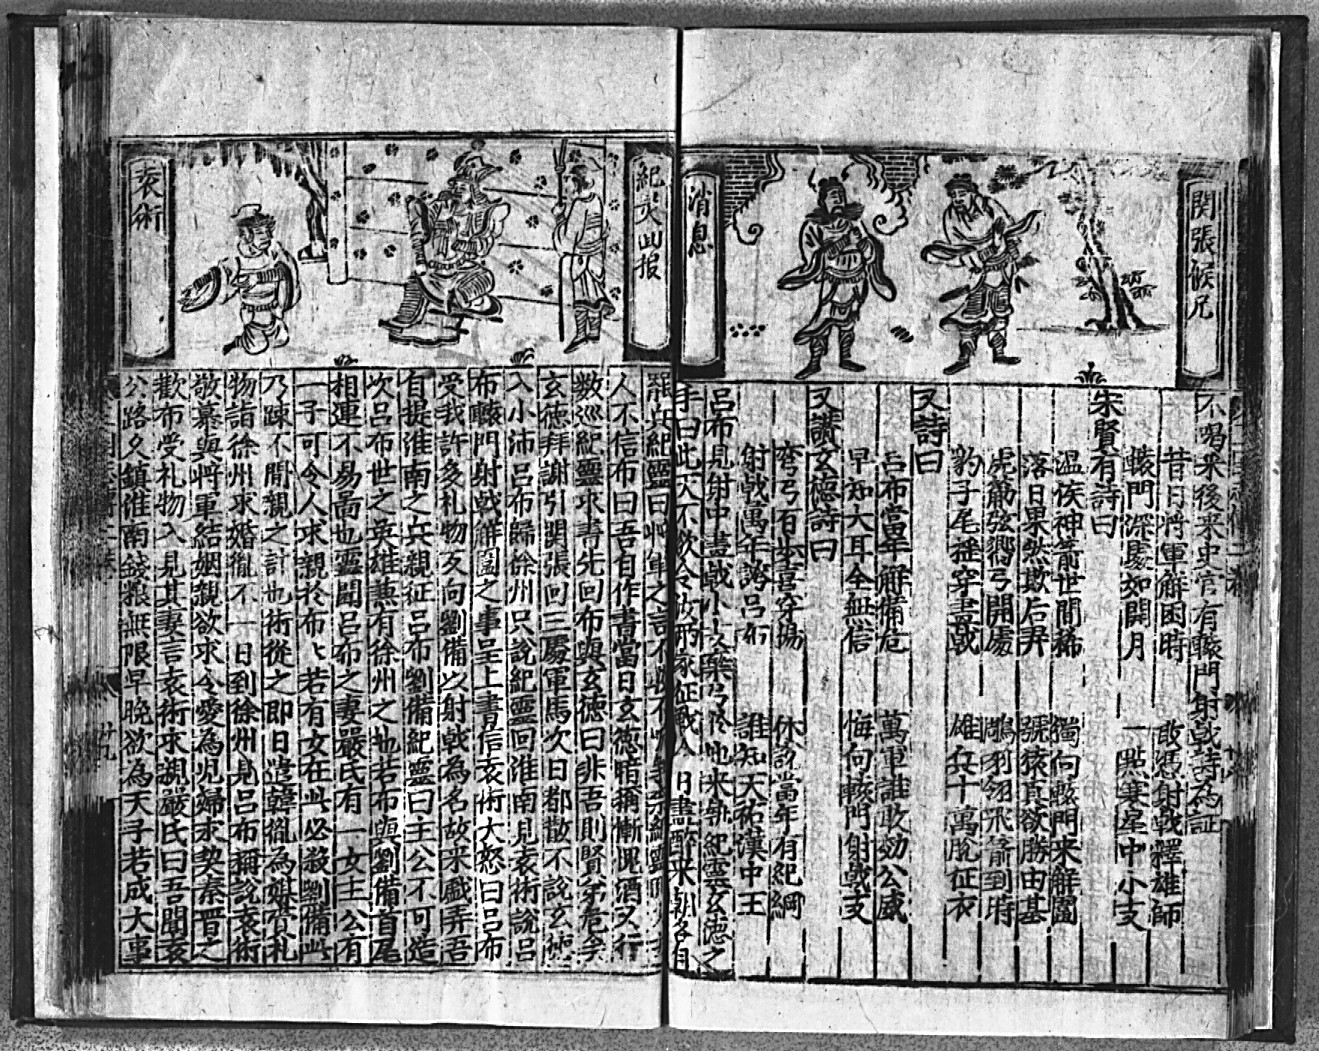 関張候兄
消息
不喝采後来史官有轅門射戟詩為証
昔日将軍解困時 敢憑射戟釋雄師
轅門深處如開月 一點寒星中小支
宋賢有詩曰
温侯神箭世間稀 獨向轅門来解圍
落日果然欺后羿 號猿真欲勝由基
虎筋弦響弓開處 鵰羽翎飛箭到時
豹子尾摇穿畫戟 雄兵十萬脱征衣
又詩曰
吕布當年解備危 萬軍誰敢効公威
早知大耳全無信 悔向轅門射戟支
又讃玄德詩曰
彎弓百步喜穿楊 休說當年有紀綱
射戟萬年誇吕布 誰知天祐漢中王
吕布見射中畫戟小支棄弓於地来執紀靈玄德之
手曰此天不欲令汝兩家征戰今日盡醉来朝各自
紀灵回报
袁術
罷兵紀靈曰将軍之言不
人不信布曰吾自作書當日玄德暗稱慚愧酒又行
数巡紀靈求書先回布與玄德曰非吾則賢弟危矣
玄德拜謝引関張回三處軍馬次日都散不說玄德
入小沛吕布歸徐州只說紀靈回淮南見袁術說吕
布轅門射戟解圍之事呈上書信袁術大怒曰吕布
受我許多礼物反向劉備以射戟為名故来戲弄吾
自提淮南之兵親征吕布劉備紀靈曰主公不可造
次吕布世之英雄兼有徐州之地若布與劉備首尾
相連不易啚也靈聞吕布之妻嚴氏有一女主公有
一子可令人求親於布〻若有女在此必殺劉備此
乃踈不間親之計也術從之即日遣韓胤為媒賫礼
物詣徐州求婚胤不一日到徐州見吕布稱說袁術
敬慕與将軍結姻親欲求令愛為児婦求契秦晋之
歡布受礼物入見其妻言袁術求親嚴氏曰吾聞袁
公路久鎮淮南錢粮無限早晚欲為天子若成大事